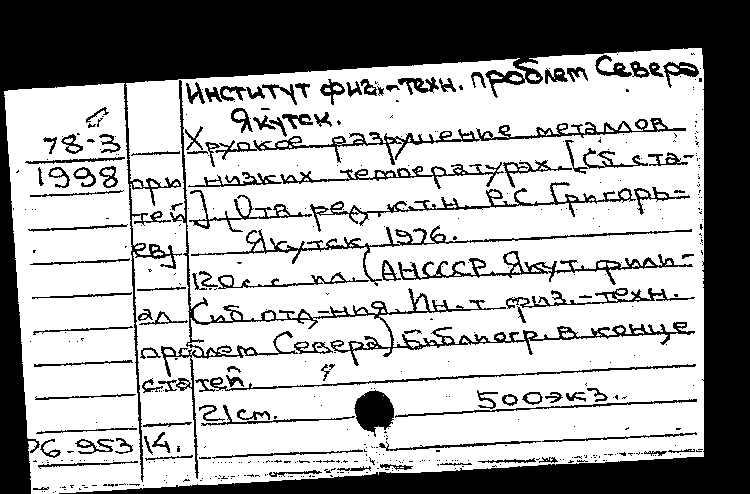 Институт физ.-техн. проблем Севера.
Якутск.
78-3 Хрупкое разрушение металлов
1998 при низких температурах. [Сб. ста-
тей]. [Отв. ред. к.т.н. Р.С. Григорь-
ев] Якутск, 1976.
120 с. с ил. (АНСССР. Якут. фили-
ал Сиб. отд-ния. Ин-т физ.-техн.
проблем Севера). Библиогр. в конце
статей.
21 см. 500экз.
76-953 14.